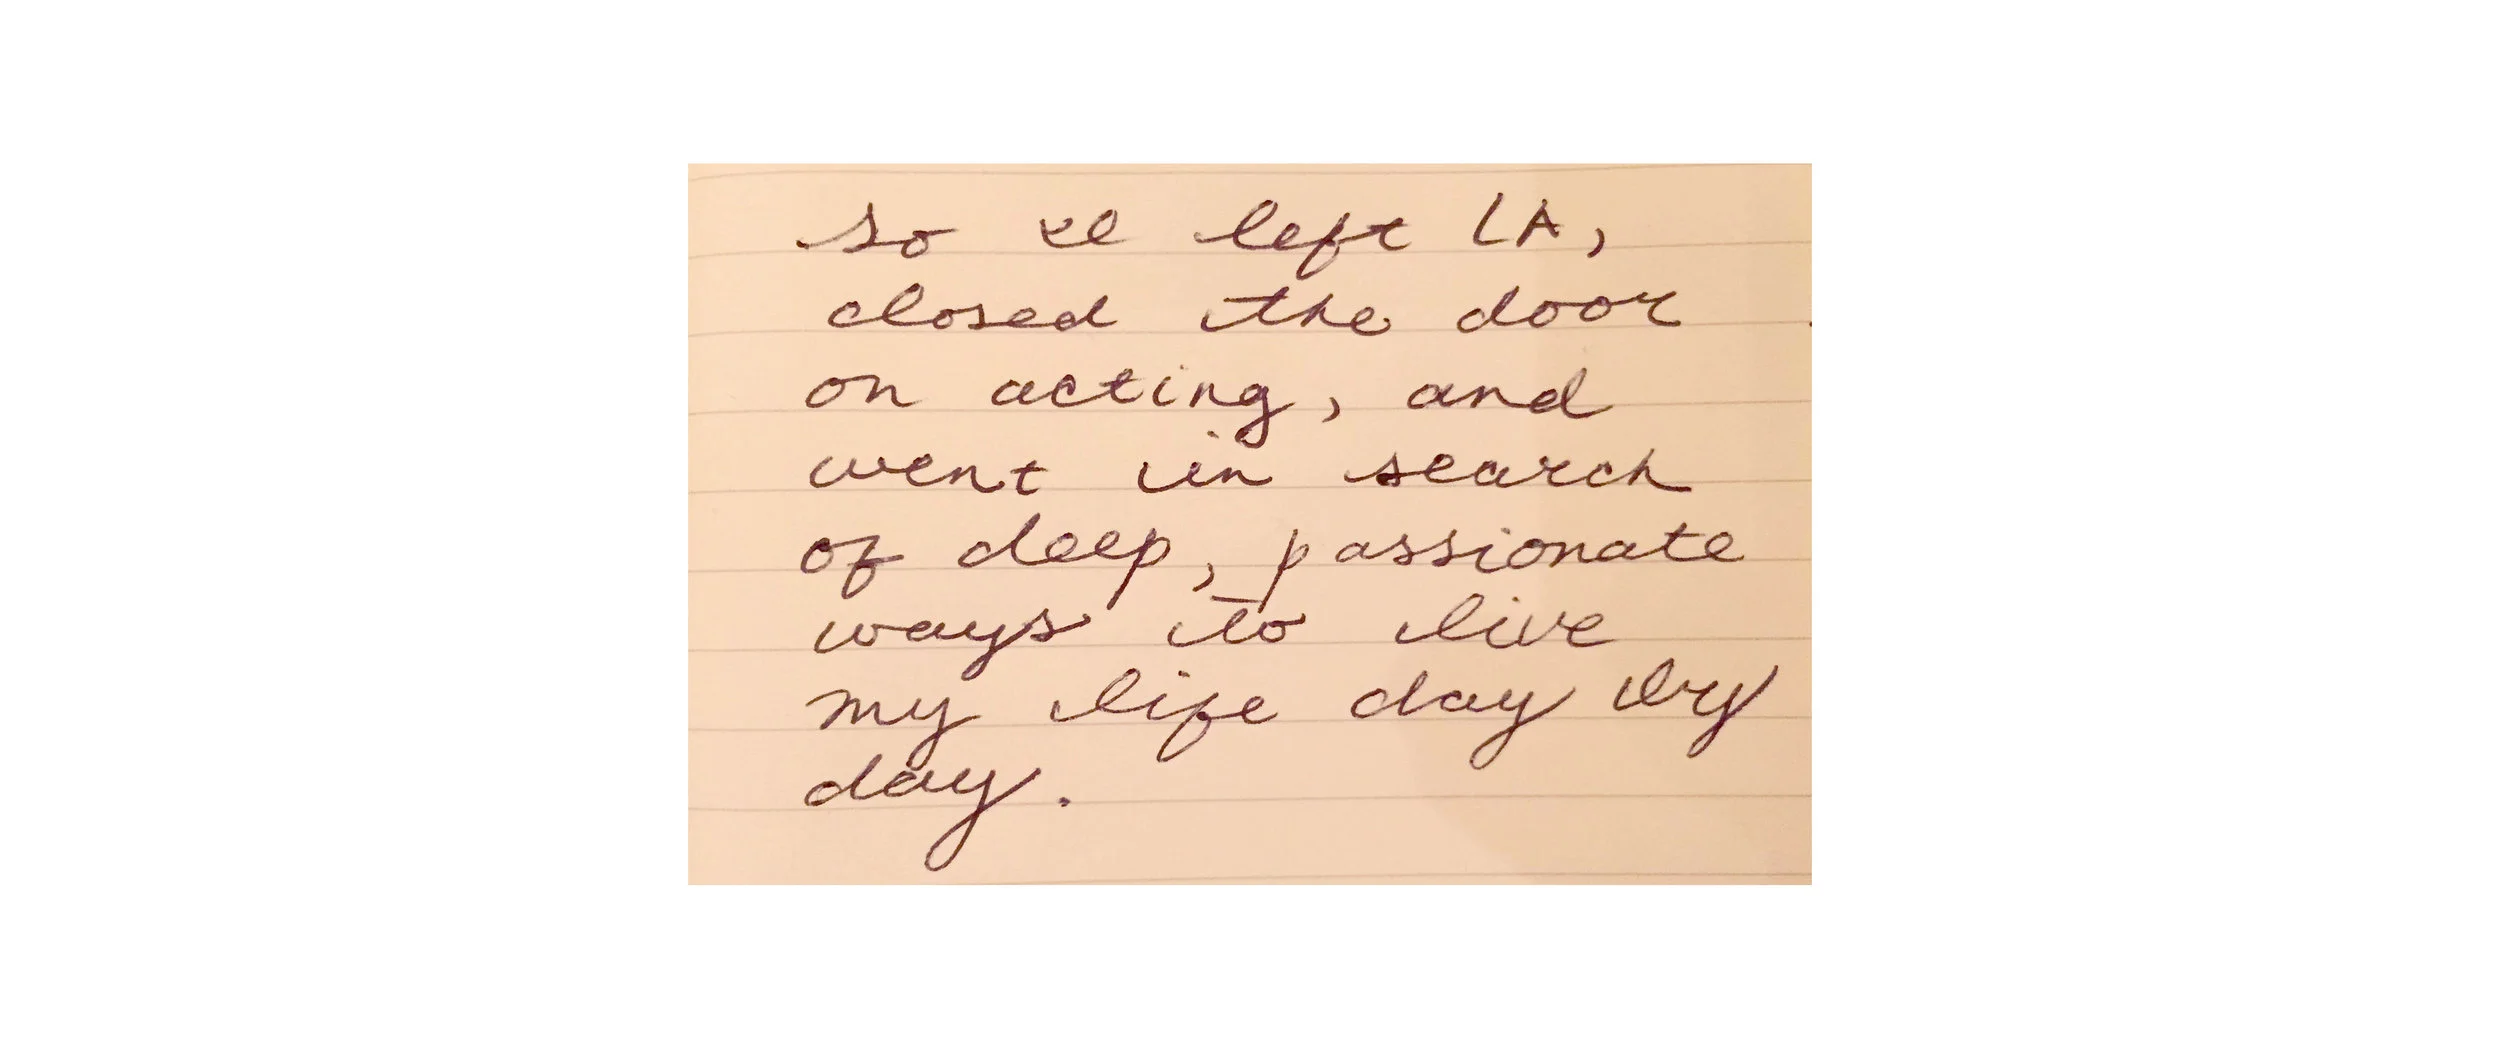 so I left LA,
closed the door
on acting, and
went in search
of deep, passionate
ways to live
my life day by
day.